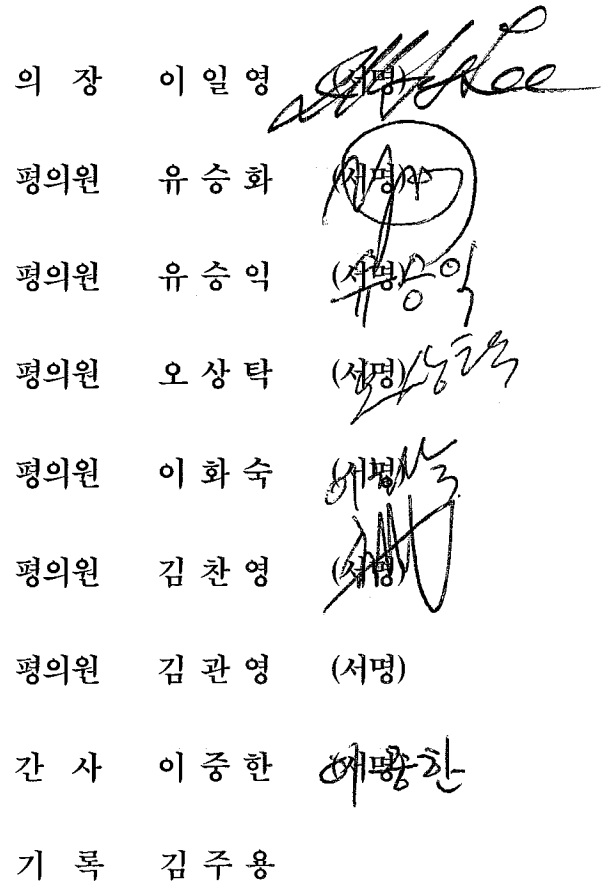 의 장 이 일 영 (서명) Lee
평의원 유 승 화 (서명)
평의원 유 승 익 (서명) 유승익
평의원 오 상 탁 (서명) 오상탁
평의원 이 화 숙 (서명)
평의원 김 찬 영 (서명)
평의원 김 관 영 (서명)
간 사 이 중 한 (서명) 이중한
기 록 김 주 용